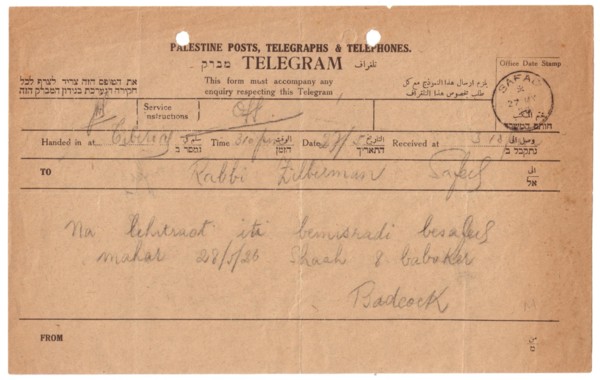 PALESTINE POSTS, TELEGRAPHS & TELEPHONES.
מברק TELEGRAM تلغراف
Office Date Stamp
את הטופס הזה צריך לצרף לכל
חקירה הנערכת בנידון המברק הזה
This form must accompany any
enquiry respecting this Telegram
يلزم ارسال هذا النموذج مع كل
طلب مخصوص هذا التلغراف
SAFAD
27
Service
Instructions
Off.
חותם המשרד
Handed in at Tiberias נמסר ב Time الوقت הזמן Date 27/5 التاريخ התאריך Received at נתקבל ב
TO Rabbi Zilberman Safed الى אל
Na lehitraot iti bemisradi besafed
mahar 28/5/36 Shaah 8 baboker
Badcock
FROM